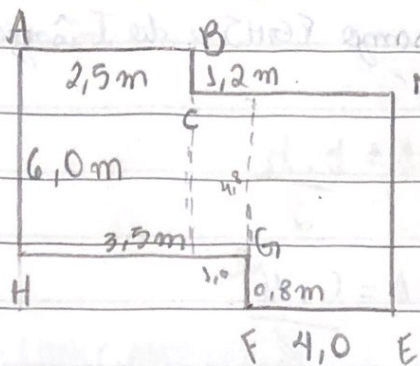 A B
2,5m 1,2m
C
6,0m 4,8
3,5m G
1,0
H 0,8m
F 4,0 E